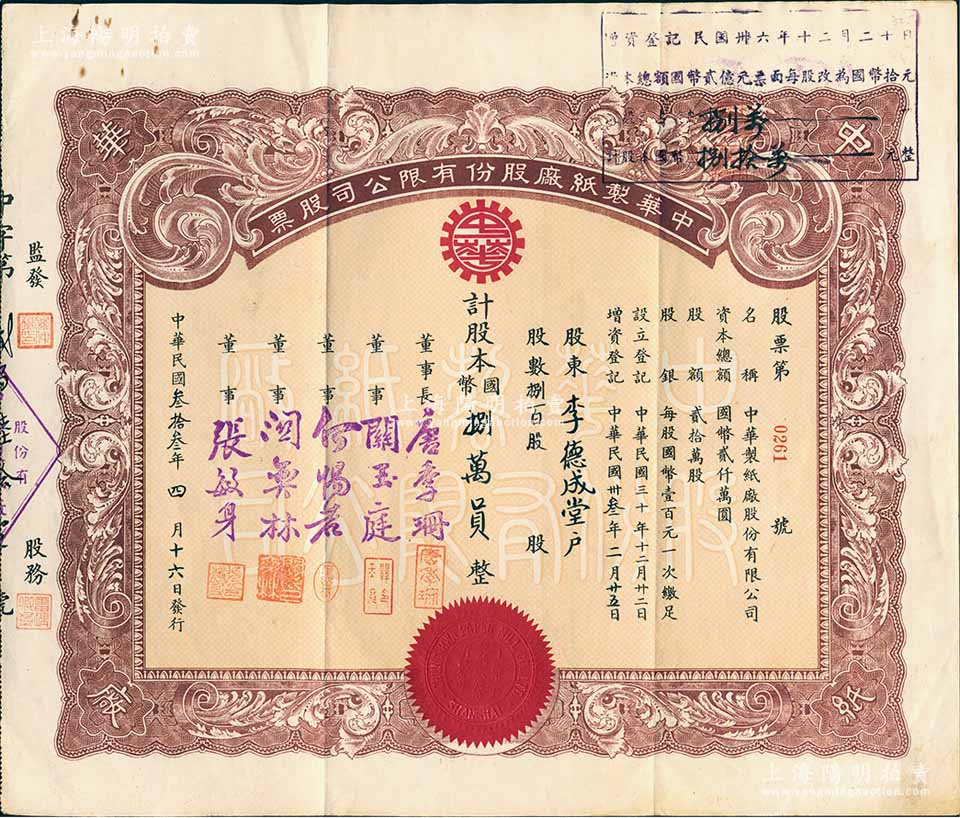 上海陽明拍賣
www.yangmingauction.com
增資登記 民國卅六年十二月二十日
資本總額國幣貳億元票面每股改為國幣拾元
捌萬
計股本國幣 捌拾萬 元整
中
華
紙
廠
中華製紙廠股份有限公司股票
股票第 0261 號
名稱 中華製紙廠股份有限公司
資本總額 國幣貳仟萬圓
股額 貳拾萬股
股銀 每股國幣壹百元一次繳足
設立登記 中華民國三十年十二月廿二日
增資登記 中華民國卅叁年二月廿五日
股東 李德成堂戶
股數捌百股 股
計股本國幣 捌萬員 整
董事長 唐季珊
董事 關玉庭
董事 何惕若
董事
董事 張敏男
中華民國叁拾叁年 四 月十六日發行
監發
股務
中字第
號
股份有
中華製紙廠
股份有限公司
SHANGHAI
上海陽明拍賣
www.yangmingauction.com
上海陽明拍賣
www.yangmingauction.com